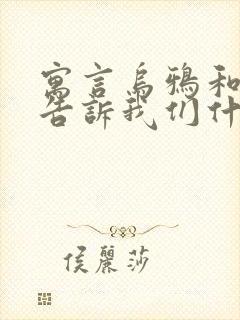 寓言烏鴉和
告訴我们什
侯麗莎